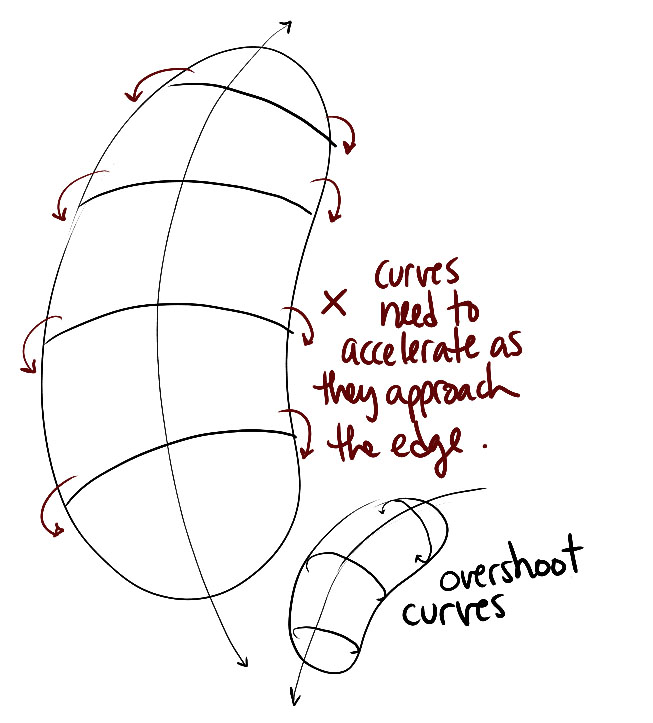 × curves
need to
accelerate as
they approach
the edge.
overshoot
curves